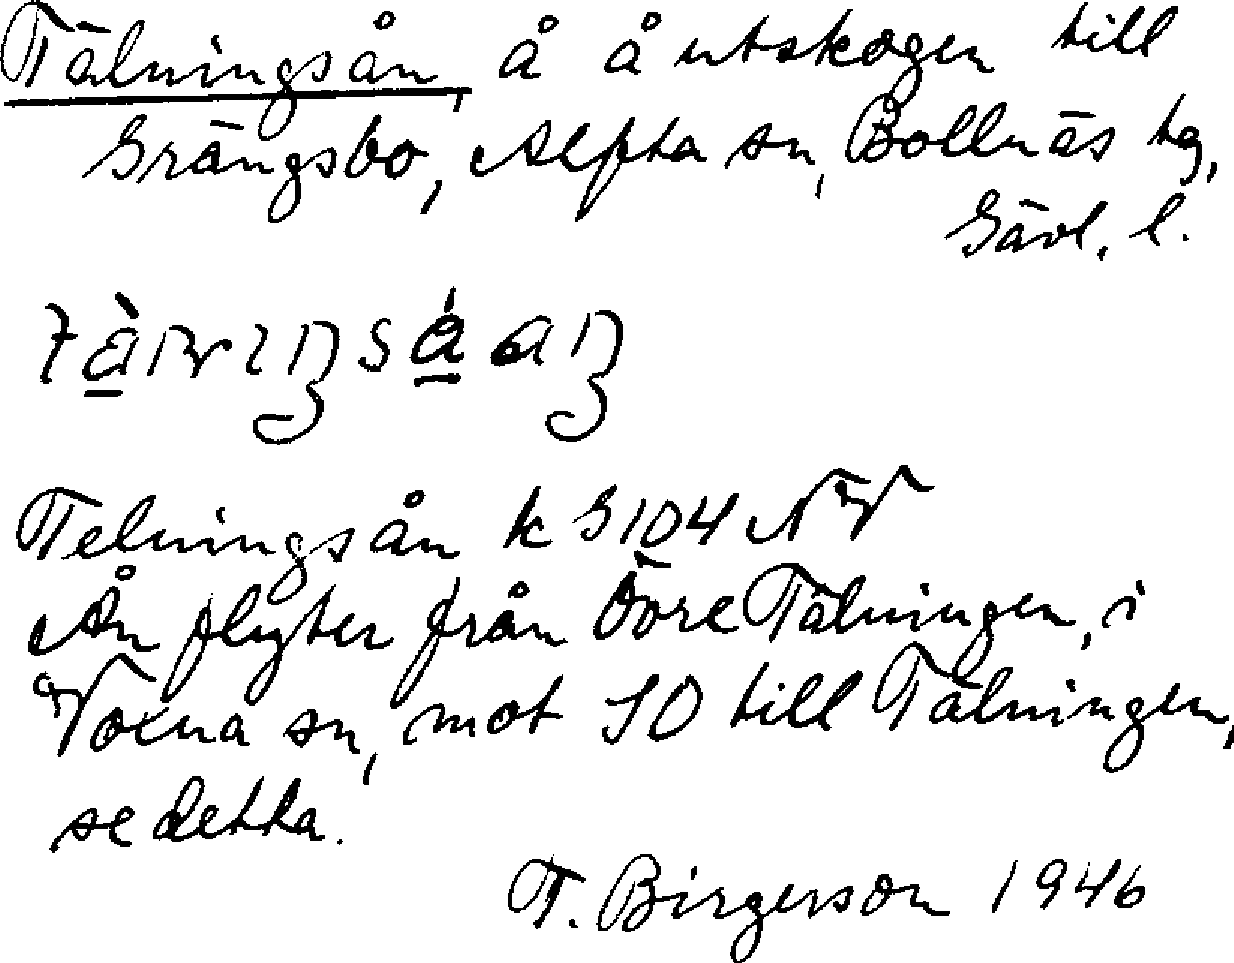 Tälningsån, å å utskogen till
Grängsbo, Alfta sn, Bollnäs tg,
Gävl. l.
Telningsån k G104 NV
Ån flyter från Övre Tälningen, i
Voxna sn, mot SO till Tälningen,
se detta.
T. Birgerson 1946